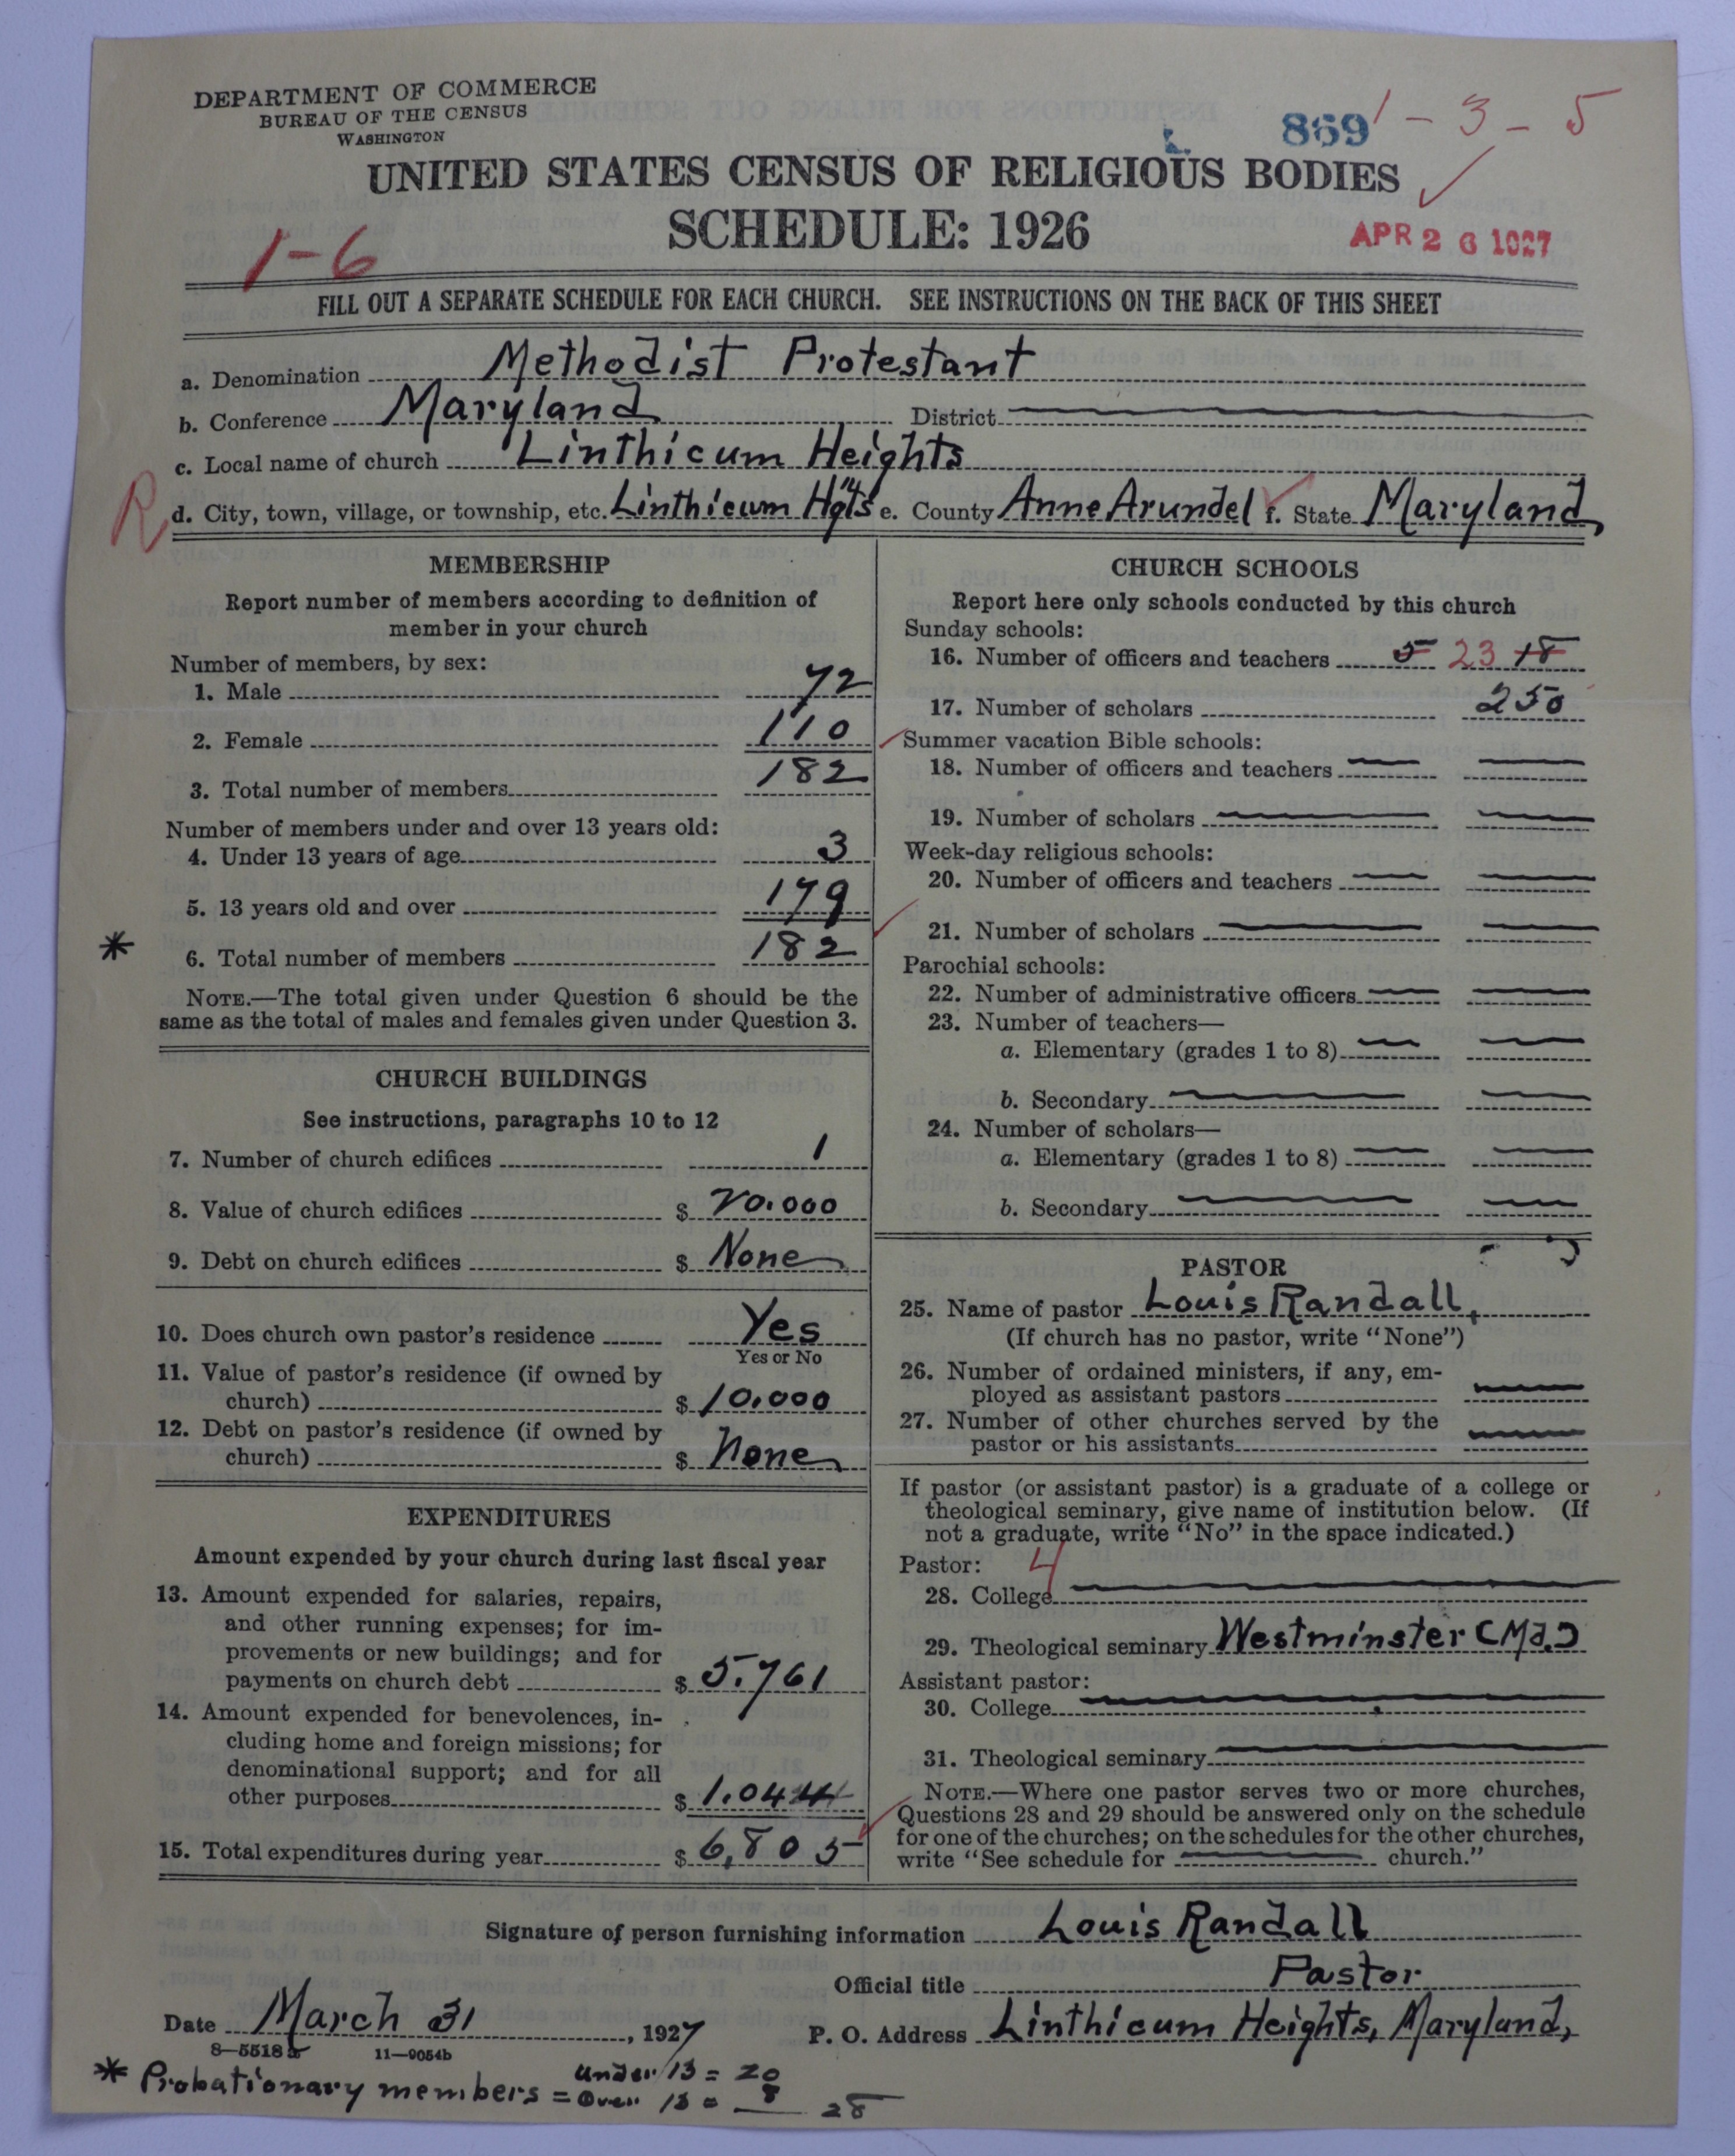 DEPARTMENT OF COMMERCE
BUREAU OF THE CENSUS
WASHINGTON
869
1-3-5
UNITED STATES CENSUS OF RELIGIOUS BODIES
SCHEDULE: 1926
APR 26 1927
1-6
FILL OUT A SEPARATE SCHEDULE FOR EACH CHURCH. SEE INSTRUCTIONS ON THE BACK OF THIS SHEET
a. Denomination Methodist Protestant
b. Conference Maryland District
c. Local name of church Linthicum Heights
R
d. City, town, village, or township, etc. Linthicum Hgts e. County Anne Arundel f. State Maryland,
MEMBERSHIP
Report number of members according to definition of
member in your church
Number of members, by sex:
1. Male 72
2. Female 110
3. Total number of members 182
Number of members under and over 13 years old:
4. Under 13 years of age 3
5. 13 years old and over 179
* 6. Total number of members 182
NOTE.—The total given under Question 6 should be the
same as the total of males and females given under Question 3.
CHURCH BUILDINGS
See instructions, paragraphs 10 to 12
7. Number of church edifices 1
8. Value of church edifices $ 70.000
9. Debt on church edifices $ None
10. Does church own pastor's residence Yes
Yes or No
11. Value of pastor's residence (if owned by
church) $ 10.000
12. Debt on pastor's residence (if owned by
church) $ None
EXPENDITURES
Amount expended by your church during last fiscal year
13. Amount expended for salaries, repairs,
and other running expenses; for im-
provements or new buildings; and for
payments on church debt $ 5.761
14. Amount expended for benevolences, in-
cluding home and foreign missions; for
denominational support; and for all
other purposes $ 1.044
15. Total expenditures during year $ 6,805
CHURCH SCHOOLS
Report here only schools conducted by this church
Sunday schools:
16. Number of officers and teachers 5 23 18
17. Number of scholars 250
Summer vacation Bible schools:
18. Number of officers and teachers
19. Number of scholars
Week-day religious schools:
20. Number of officers and teachers
21. Number of scholars
Parochial schools:
22. Number of administrative officers
23. Number of teachers—
a. Elementary (grades 1 to 8)
b. Secondary
24. Number of scholars—
a. Elementary (grades 1 to 8)
b. Secondary
PASTOR
25. Name of pastor Louis Randall,
(If church has no pastor, write "None")
26. Number of ordained ministers, if any, em-
ployed as assistant pastors
27. Number of other churches served by the
pastor or his assistants
If pastor (or assistant pastor) is a graduate of a college or
theological seminary, give name of institution below. (If
not a graduate, write "No" in the space indicated.)
Pastor: 4
28. College
29. Theological seminary Westminster (Md.)
Assistant pastor:
30. College
31. Theological seminary
NOTE.—Where one pastor serves two or more churches,
Questions 28 and 29 should be answered only on the schedule
for one of the churches; on the schedules for the other churches,
write "See schedule for church."
Signature of person furnishing information Louis Randall
Official title Pastor
Date March 31, 1927
P. O. Address Linthicum Heights, Maryland,
8-5518a 11-9054b
* Probationary members = Under 13 = 20
Over 13 = 8 28